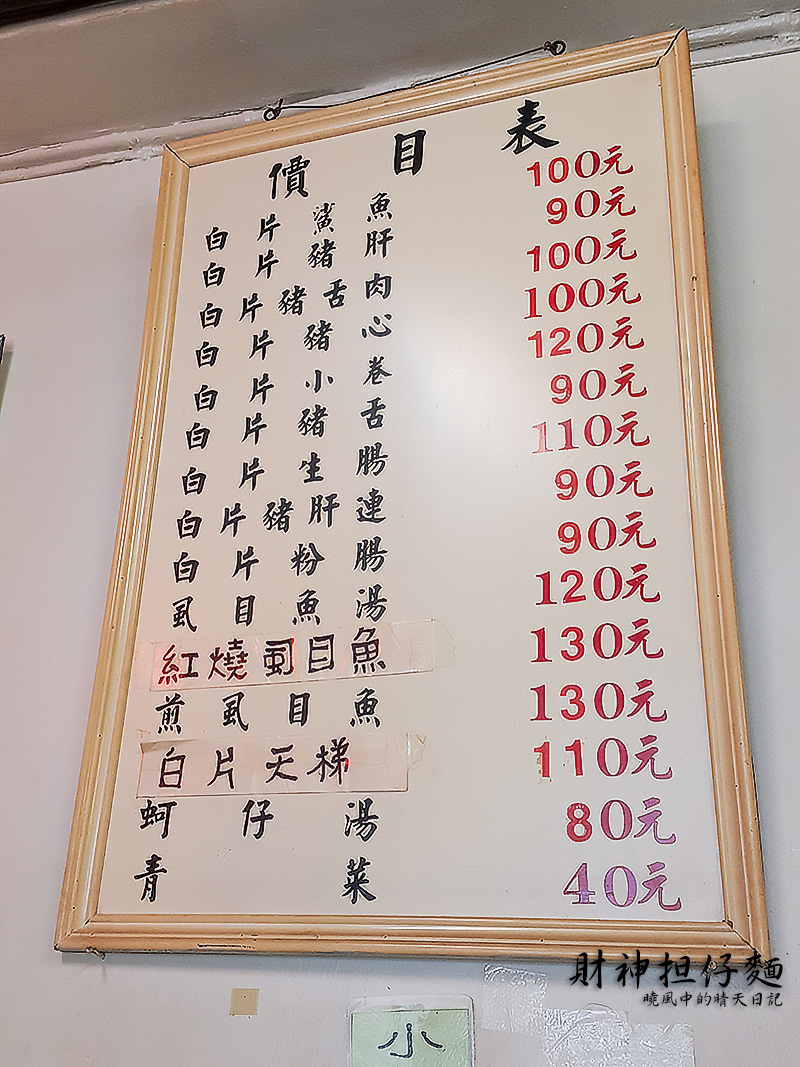 價目表
白片鯊魚 100元
白片豬肝 90元
白片豬舌肉 100元
白片豬心 100元
白片小卷 120元
白片豬舌 90元
白片生腸 110元
白片豬肝連 90元
白片粉腸 90元
虱目魚湯 120元
紅燒虱目魚 130元
煎虱目魚 130元
白片天梯 110元
蚵仔湯 80元
青菜 40元
財神担仔麵
曉風中的晴天日記
小